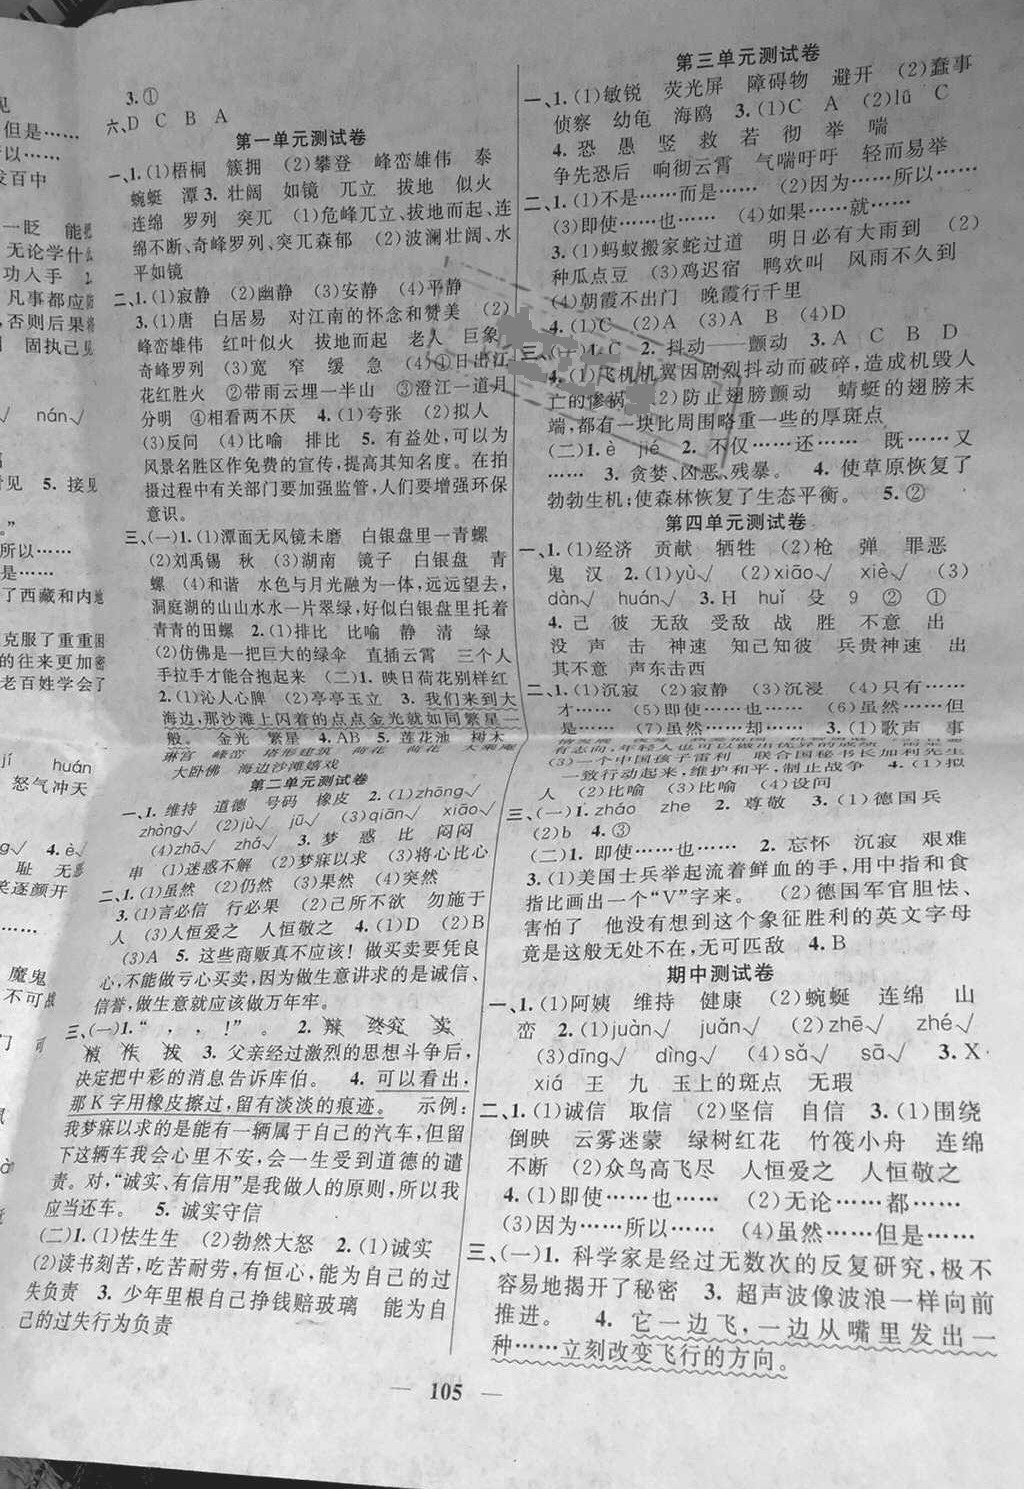 见
但是……
所以……
发百中
一眨 能把
无论学什么
功入手 2.
凡事都应
,否则后果将
固执己见
√ nán√
看见 5. 接见
。”
所以……
是……
了西藏和内地
克服了重重困
的往来更加密
老百姓学会了
jí huán
怒气冲天
√ 4. è√
耻 无恶
笑逐颜开
……
魔鬼
不可战
3. ①
六、D C B A
第一单元测试卷
一、1. (1)梧桐 簇拥 (2)攀登 峰峦雄伟 泰
蜿蜒 潭 3. 壮阔 如镜 兀立 拔地 似火
连绵 罗列 突兀 (1)危峰兀立、拔地而起、连
绵不断、奇峰罗列、突兀森郁 (2)波澜壮阔、水
平如镜
二、1. (1)寂静 (2)幽静 (3)安静 (4)平静
3. (1)唐 白居易 对江南的怀念和赞美 (2)
峰峦雄伟 红叶似火 拔地而起 老人 巨象
奇峰罗列 (3)宽 窄 缓 急 (4)①日出江
花红胜火 ②带雨云埋一半山 ③澄江一道月
分明 ④相看两不厌 4. (1)夸张 (2)拟人
(3)反问 (4)比喻 排比 5. 有益处,可以为
风景名胜区作免费的宣传,提高其知名度。在拍
摄过程中有关部门要加强监管,人们要增强环保
意识。
三、(一)1. (1)潭面无风镜未磨 白银盘里一青螺
(2)刘禹锡 秋 (3)湖南 镜子 白银盘 青
螺 (4)和谐 水色与月光融为一体,远远望去,
洞庭湖的山山水水一片翠绿,好似白银盘里托着
青青的田螺 2. (1)排比 比喻 静 清 绿
(2)仿佛是一把巨大的绿伞 直插云霄 三个人
手拉手才能合抱起来 (二)1. 映日荷花别样红
2. (1)沁人心脾 (2)亭亭玉立 3. 我们来到大
海边,那沙滩上闪着的点点金光就如同繁星一
般。 金光 繁星 4. AB 5. 莲花池 树木
琳宫 峰峦 塔形建筑 荷花 荷花 大乘庵
大卧佛 海边沙滩嬉戏
第二单元测试卷
一、1. 维持 道德 号码 橡皮 2. (1)zhōng√
zhòng√ (2)jù√ jū√ (3)qiān√ xiāo√
(4)zhā√ zhá√ 3. 梦 惑 比 闷闷
串 (1)迷惑不解 (2)梦寐以求 (3)将心比心
二、1. (1)虽然 (2)仍然 (3)果然 (4)突然
3. (1)言必信 行必果 (2)己所不欲 勿施于
人 (3)人恒爱之 人恒敬之 4. (1)D (2)B
(3)A 5. 这些商贩真不应该!做买卖要凭良
心,不能做亏心买卖,因为做生意讲求的是诚信、
信誉,做生意就应该做万年牢。
三、(一)1. “ , , !” 。 2. 辩 终究 卖
楨 作 拨 3. 父亲经过激烈的思想斗争后,
决定把中彩的消息告诉库伯。 4. 可以看出,
那K字用橡皮擦过,留有淡淡的痕迹。 示例:
我梦寐以求的是能有一辆属于自己的汽车,但留
下这辆车我会心里不安,会一生受到道德的谴
责。对,“诚实、有信用”是我做人的原则,所以我
应当还车。 5. 诚实守信
(二)1. (1)怯生生 (2)勃然大怒 2. (1)诚实
(2)读书刻苦,吃苦耐劳,有恒心,能为自己的过
失负责 3. 少年里根自己挣钱赔玻璃 能为自
己的过失行为负责
第三单元测试卷
一、1. (1)敏锐 荧光屏 障碍物 避开 (2)蠢事
侦察 幼龟 海鸥 3. (1)C A (2)lǔ C
4. 恐 愚 竖 救 若 彻 举 喘
争先恐后 响彻云霄 气喘吁吁 轻而易举
二、1. (1)不是……而是…… (2)因为……所以……
(3)即使……也…… (4)如果……就……
3. (1)蚂蚁搬家蛇过道 明日必有大雨到 (2)
种瓜点豆 (3)鸡迟宿 鸭欢叫 风雨不久到
(4)朝霞不出门 晚霞行千里
4. (1)C (2)A (3)A B (4)D
三、(一)1. C 2. 抖动——颤动 3. A C B D
4. (1)飞机机翼因剧烈抖动而破碎,造成机毁人
亡的惨祸 (2)防止翅膀颤动 蜻蜓的翅膀末
端,都有一块比周围略重一些的厚斑点
(二)1. è jié 2. 不仅……还…… 既……又
…… 3. 贪婪、凶恶、残暴。 4. 使草原恢复了
勃勃生机;使森林恢复了生态平衡。 5. ②
第四单元测试卷
一、1. (1)经济 贡献 牺牲 (2)枪 弹 罪恶
鬼 汉 2. (1)yù√ (2)xiāo√ xiè√ (3)
dàn√ huán√ 3. H huǐ 殳 9 ② ①
4. 己 彼 无敌 受敌 战 胜 不意 出
没 声 击 神速 知己知彼 兵贵神速 出
其不意 声东击西
二、1. (1)沉寂 (2)寂静 (3)沉浸 (4)只有……
才…… (5)即使……也…… (6)虽然……但
是…… (7)虽然……却…… 3. (1)歌声 事
有志向,年轻人也可以做出优异的成绩
(3)一个中国孩子雷利 联合国秘书长加利先生
一致行动起来,维护和平,制止战争 4. (1)拟
人 (2)比喻 (3)比喻 (4)设问
三、(一)1. zháo zhe 2. 尊敬 3. (1)德国兵
(2)b 4. ③
(二)1. 即使……也…… 2. 忘怀 沉寂 艰难
3. (1)美国士兵举起流着鲜血的手,用中指和食
指比画出一个“V”字来。 (2)德国军官胆怯、
害怕了 他没有想到这个象征胜利的英文字母
竟是这般无处不在,无可匹敌 4. B
期中测试卷
一、1. (1)阿姨 维持 健康 (2)蜿蜒 连绵 山
峦 2. (1)juàn√ juǎn√ (2)zhē√ zhé√
(3)dīng√ dìng√ (4)sǎ√ sā√ 3. X
xiá 王 九 玉上的斑点 无瑕
二、1. (1)诚信 取信 (2)坚信 自信 3. (1)围绕
倒映 云雾迷蒙 绿树红花 竹筏小舟 连绵
不断 (2)众鸟高飞尽 人恒爱之 人恒敬之
4. (1)即使……也…… (2)无论……都……
(3)因为……所以…… (4)虽然……但是……
三、(一)1. 科学家是经过无数次的反复研究,极不
容易地揭开了秘密 3. 超声波像波浪一样向前
推进。 4. 它一边飞,一边从嘴里发出一
种……立刻改变飞行的方向。
— 105 —